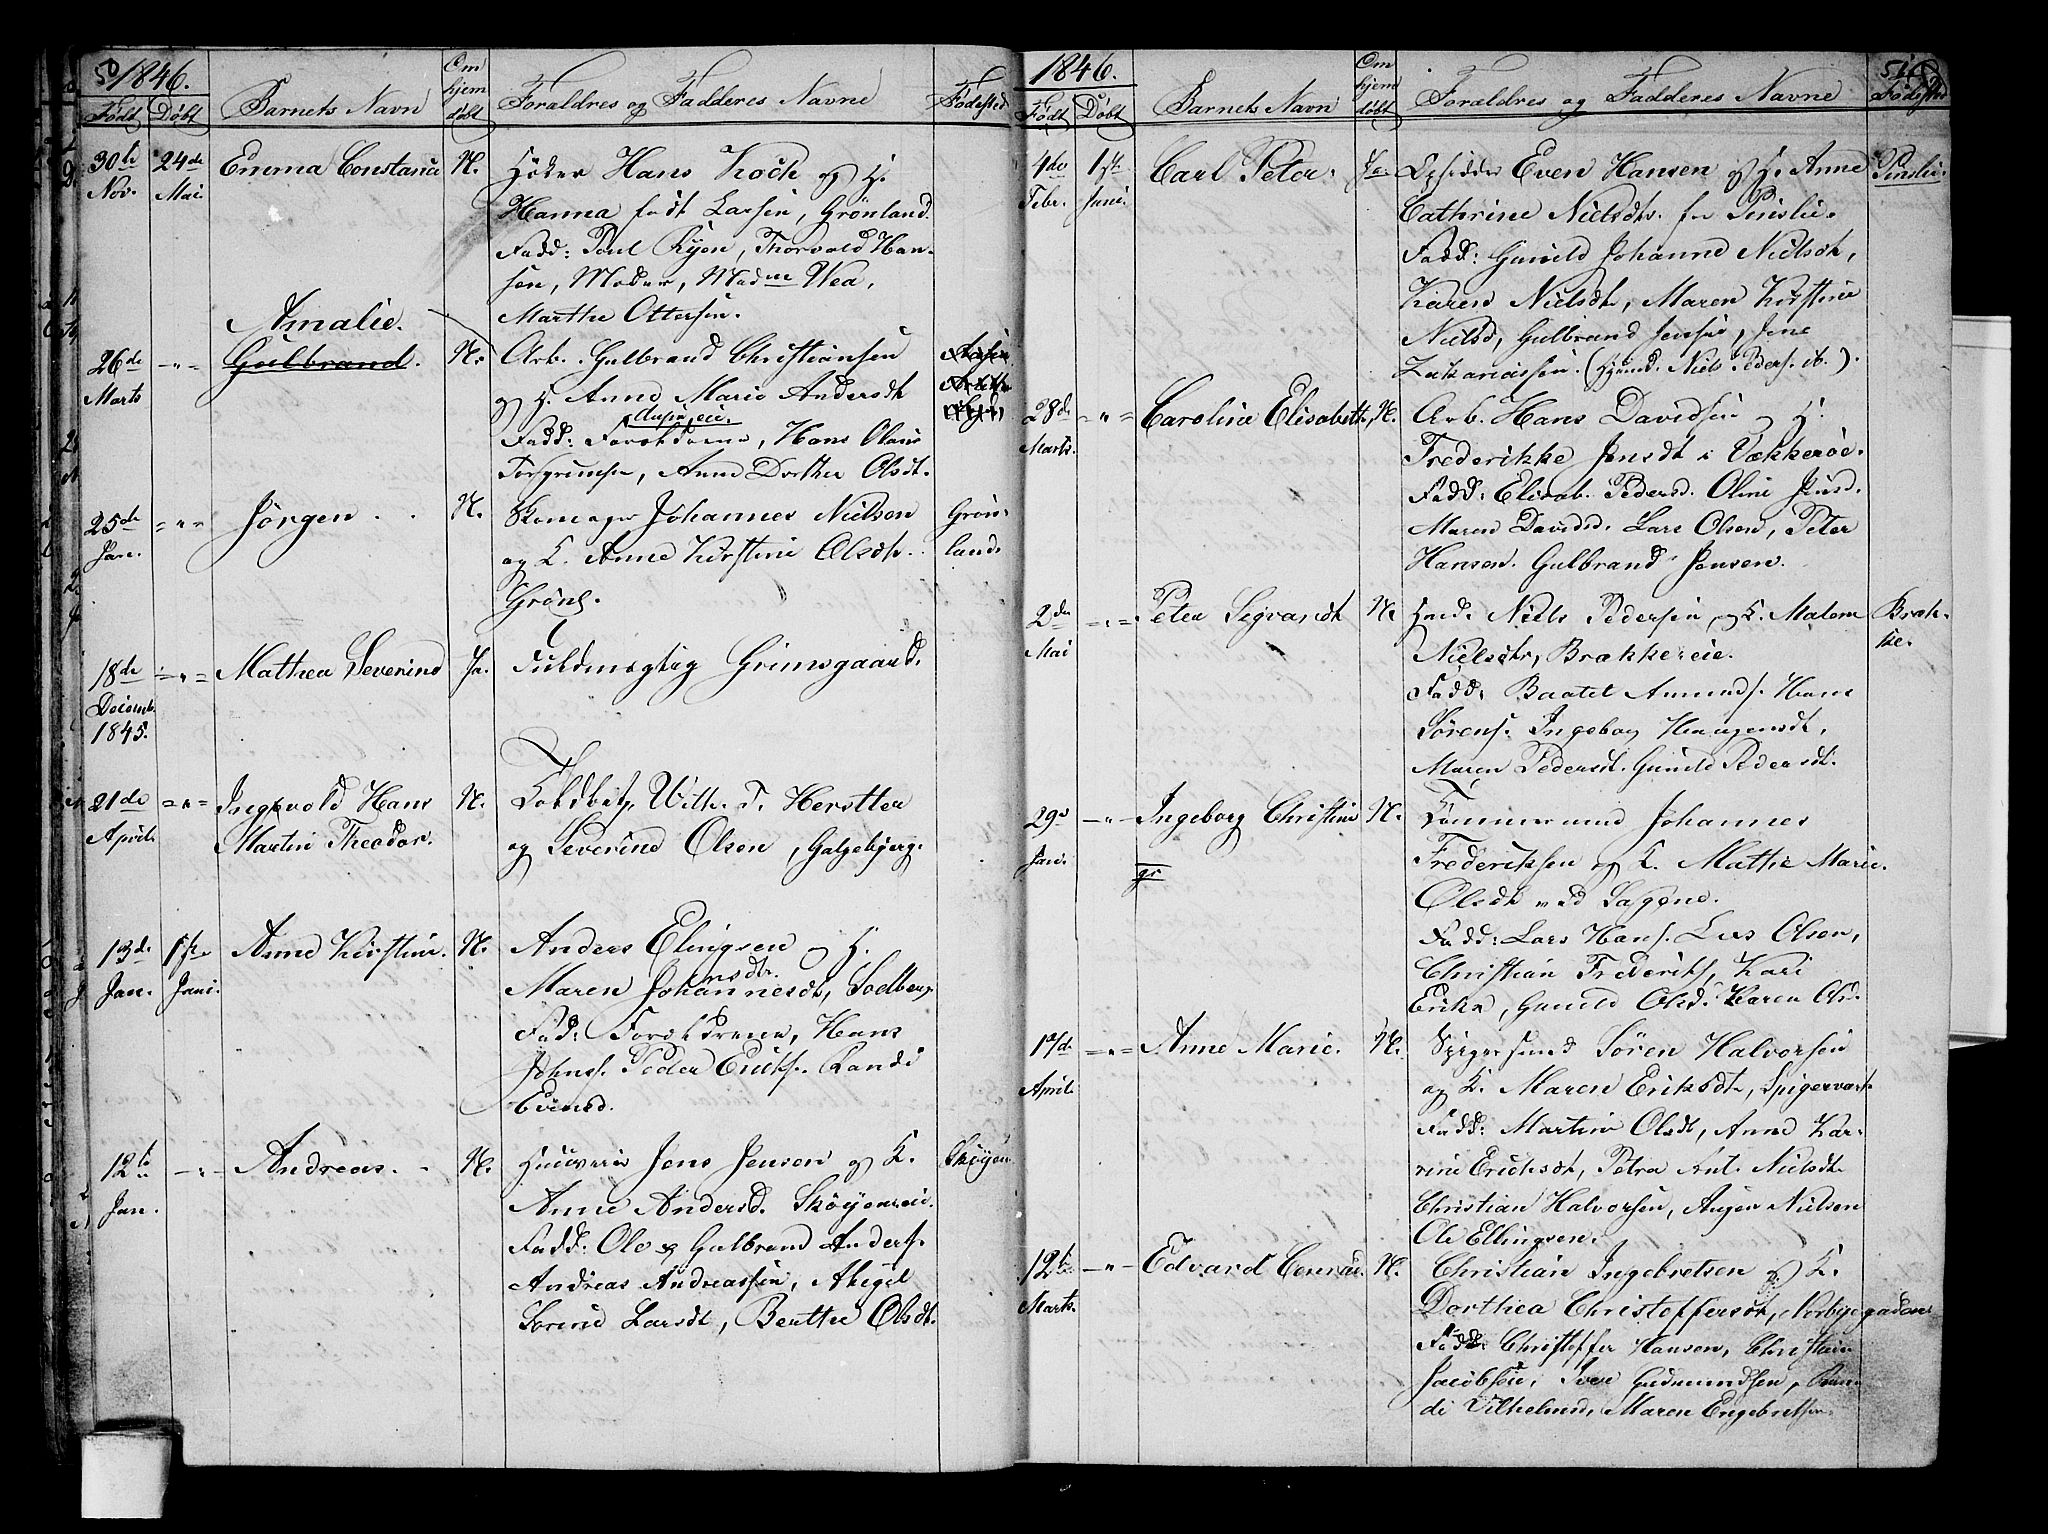 50 1846.
Født Døbt Barnets Navn Om hjem døbt Forældres og Fadderes Navne Fødested
30te Nov. 24de Mai Emma Constance N. Høker Hans Koch og H.
Hanna født Larsen, Grønland.
Fadd: Poul Ryen, Thorvald Han-
sen, Moder, Madme Wea,
Marthe Ottersen.
Amalie.
26de Marts -"- Gulbrand. N. Arb. Gulbrand Christiansen
og H. Anne Marie Andersdt
Fadd: Forældrene, Hans Olaus
Torgrimsen, Anne Dorthea Olsdt.
25de Jan. ="= Jørgen. N. Skomager Johannes Nielsen Grøn-
og K. Anne Kirstine Olsdt. land.
Grønl.
18de Decemb. 1845. ="= Mathea Severine Ja. Fuldmægtig Grimsgaard.
21de April. ="= Ingevold Hans N. Toldbetj. Wilh. T. Herstter
Martin Theodor. og Severine Olsen, Galgebjerg.
13de Jan. 1ste Juni. Anne Kirstine. N. Anders Elingsen og H.
nsdtr.
Maren Johannesdt, Sodberg
Fad: Forældrene, Hans
Johns. Peder Eriks. Randi
Evensd.
12te Jan. -"- Andreas. N. Huusmd Jens Jensen og K. Skøyen
Anne Andersd. Skøyeneie.
Fadd: Ole og Gulbrand Anders.
Andreas Andreassen, Abegel
Sorine Larsdt, Berthe Olsdt.
1846. 51
Født Døbt Barnets Navn Om hjem døbt Forældres og Fadderes Navne Fødested
4de Febr. 1ste Juni. Carl Peter. Ja. Opsidder Even Hansen og H. Anne Tinslie.
Cathrine Nielsdtr. fra Tinslie.
Fadd: Gunild Johanne Nielsdt,
Karen Nielsdt, Maren Kirstine
Nielsd, Gulbrand Jensen, Jens
Zakariassen. (Hjemd. Niels Peders. ib.).
28de Marts. ="= Caroline Elisabeth. N. Arb. Hans Davidsen og H.
Frederikke Jensdt i Vækkerøe.
Fadd: Elisab. Pedersd. Oline Jensd.
Maren Davidsd. Lars Olsen, Peter
Hansen. Gulbrand Jensen.
2den Mai -"= Peter Segvardt N. Huusm: Niels Pedersen og K. Malene Bræk-
Nielsdtr, Brækkereie. ke.
Fadd: Baatel Amunds. Hans
Sørens. Ingeborg Haagensdt,
Maren Pedersdt. Gunild Pedersdt.
29de Jan. -"- Ingeborg Christine N. Tømmermand Johannes
Frederiksen og K. Mathea Marie
Olsdt ved Sagene.
Fadd: Lars Hans. Lars Olsen,
Christian Frederiks, Kari
Eriks, Gunild Olsd. Karen Ols.
April. ="= Anne Marie. N. Spigersmed Søren Halvorsen
og K. Maren Eriksdt, Spigerværk
Fadd: Martine Olsdt, Anne Kar-
rine Ericksdt, Petra Ant. Nielsdt
Christian Halvorsen, Augen Nielsen
Ole Ellingsen.
12te Marts. -"- Edvard Conrad. N. Christian Ingebretsen og K.
Dorthea Christoffersdt, Norbygaden
Fadd: Christoffer Hansen, Christian
Jacobsen, Iver Gudmundsen, Ran-
di Vilhelmsd, Maren Engebretsen.